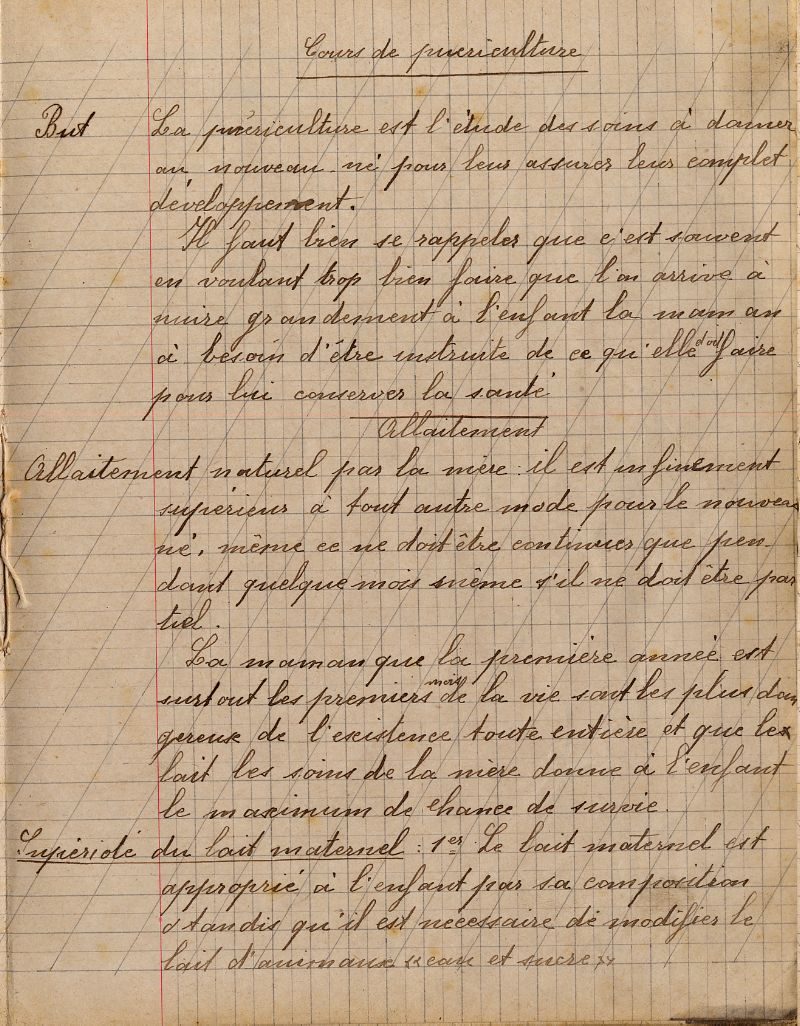 Cours de puériculture
But La puériculture est l'étude des soins à donner
au nouveau-né pour leur assurer leur complet
développement.
Il faut bien se rappeler que c'est souvent
en voulant trop bien faire que l'on arrive à
nuire grandement à l'enfant la maman
à besoin d'être instruite de ce qu'elle doit faire
pour lui conserver la santé
Allaitement
Allaitement naturel par la mère : il est infiniement
supérieur à tout autre mode pour le nouveau
né, même ce ne doit être continuer que pen-
dant quelque mois même s'il ne doit être par
tiel.
La maman que la première année est
surtout les premiers mois de la vie sont les plus dan
gereux de l'existence toute entière et que le
lait les soins de la mère donne à l'enfant
le maximum de chance de survie.
du lait maternel : 1er Le lait maternel est
approprié à l'enfant par sa composition
tandis qu'il est nécessaire de modifier le
lait d'animaux « eau et sucre »